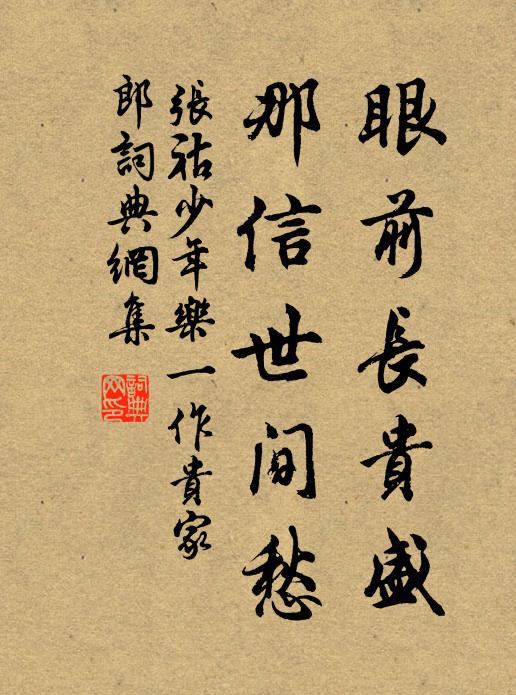 眼前長貴盛
那信世間愁
張祜少年樂一作貴家
郎詞典網集
詞典網印